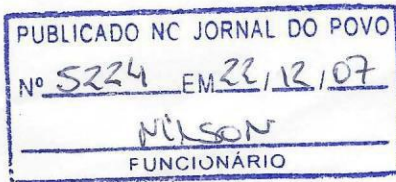 PUBLICADO NC JORNAL DO POVO
Nº 5224 EM 22/12/07
NILSON
FUNCIONÁRIO